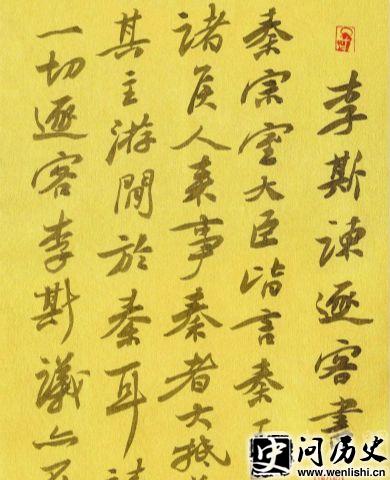 李斯諫逐客書
秦宗室大臣皆言秦
諸侯人来事秦者大抵
其主游間於秦耳
一切逐客李斯議亦
问历史
www.wenlishi.cn